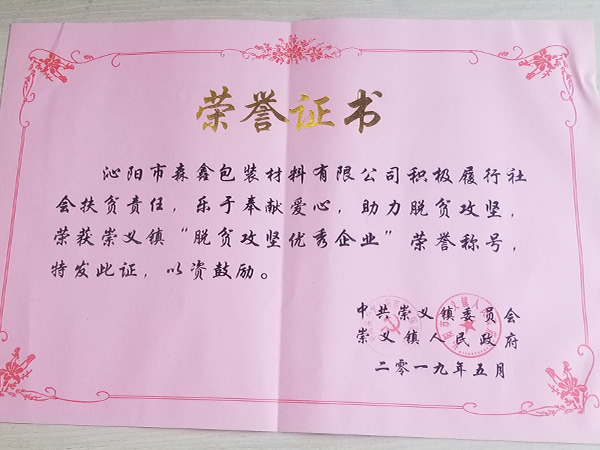 荣誉证书
沁阳市森鑫包装材料有限公司积极履行社
会扶贫责任，乐于奉献爱心，助力脱贫攻坚，
荣获崇义镇“脱贫攻坚优秀企业”荣誉称号，
特发此证，以资鼓励。
中共崇义镇委员会
崇义镇人民政府
二零一九年五月